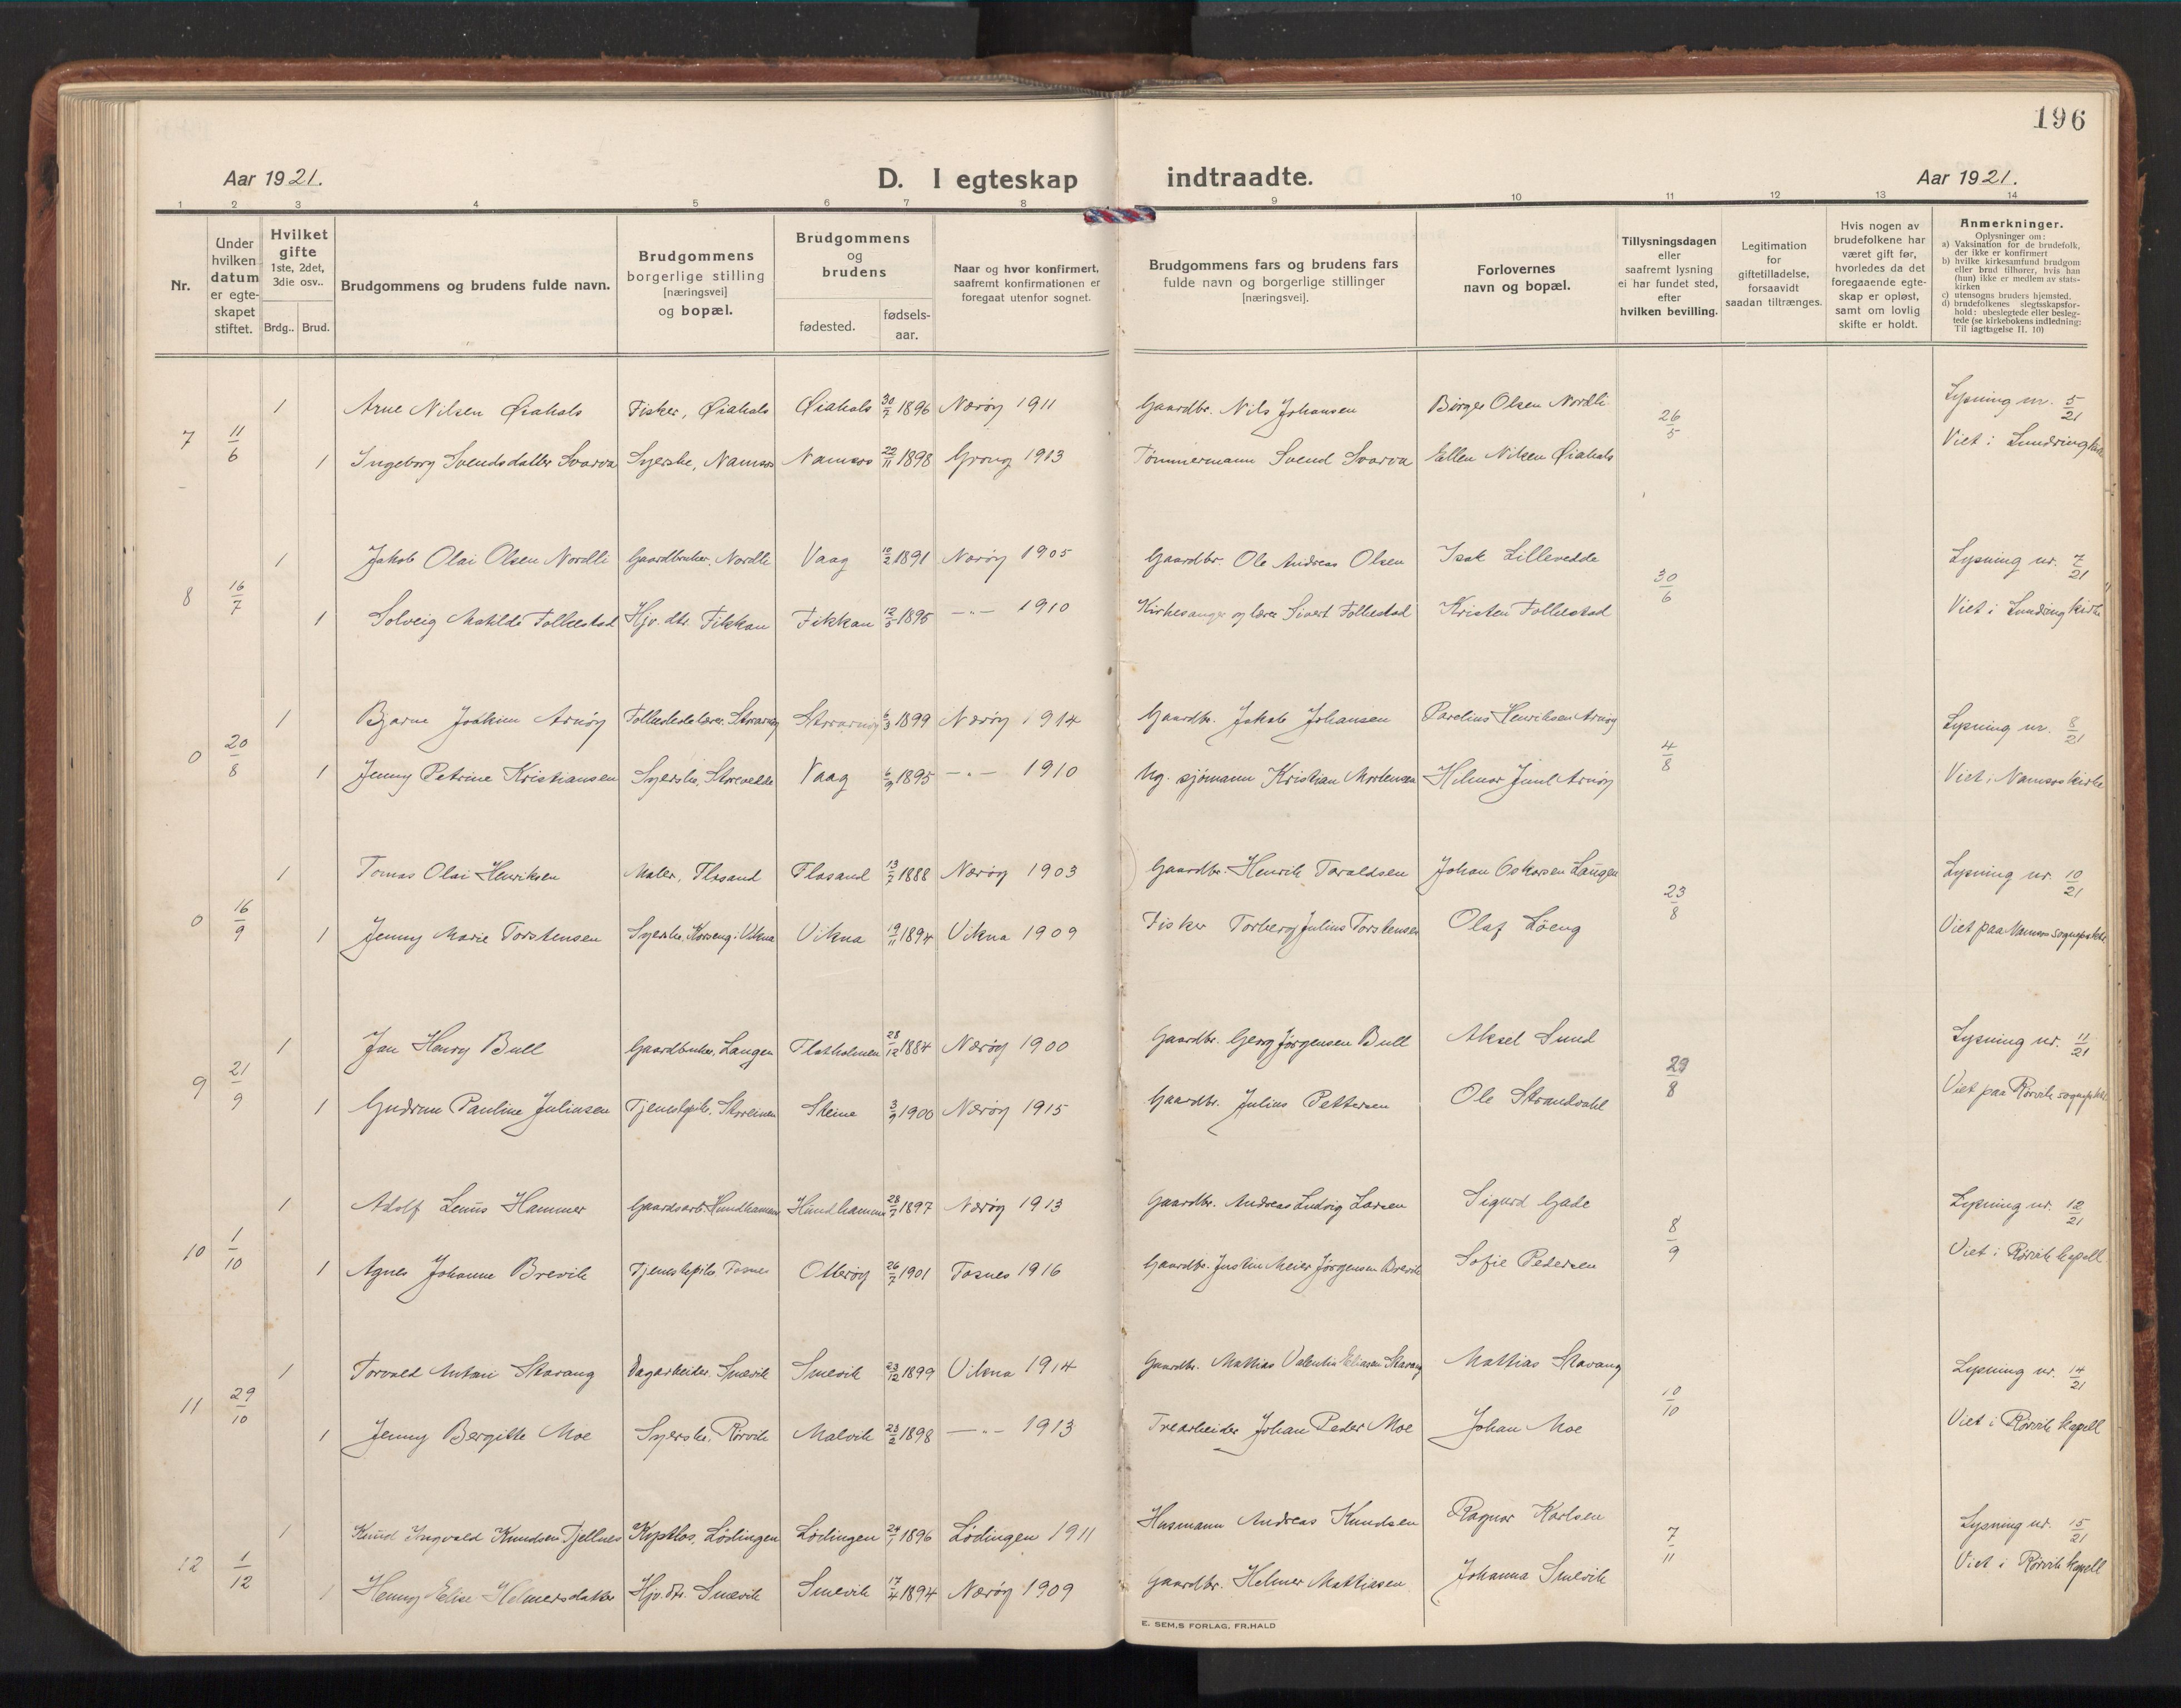 196
Aar 1921. D. I egteskap indtraadte. Aar 1921.
1 2 3 4 5 6 7 8 9 10 11 12 13 14
Nr.
Under hvilken datum er egte-skapet stiftet.
Hvilket gifte 1ste, 2det, 3die osv..
Brdg.. Brud.
Brudgommens og brudens fulde navn.
Brudgommens borgerlige stilling [næringsvei] og bopæl.
Brudgommens og brudens
fødested. fødsels-aar.
Naar og hvor konfirmert, saafremt konfirmationen er foregaat utenfor sognet.
Brudgommens fars og brudens fars fulde navn og borgerlige stillinger [næringsvei].
Forlovernes navn og bopæl.
Tillysningsdagen eller saafremt lysning ei har fundet sted, efter hvilken bevilling.
Legitimation for giftetilladelse, forsaavidt saadan tiltrænges.
Hvis nogen av brudefolkene har været gift før, hvorledes da det foregaaende egte-skap er opløst, samt om lovlig skifte er holdt.
Anmerkninger.
Oplysninger om:
a) Vaksination for de brudefolk, der ikke er konfirmert
b) hvilke kirkesamfund brudgom eller brud tilhører, hvis han (hun) ikke er medlem av stats-kirken
c) utensogns bruders hjemsted.
d) brudefolkenes slegtsskapsfor-hold: ubeslegtede eller besleg-tede (se kirkebokens indledning: Til iagttagelse II. 10)
1 Arne Nilsen Øiahals Fisker, Øiahals Øiahals 30/7 1896 Nærøy 1911 Gaardbr. Nils Johansen Børges Olsen Nordli Lysning nr. 5/21
7 11/6 26/5 Viet i Lundring kirke
1 Ingeborg Svendsdatter Svarva Syerske, Namsos Namsos 22/11 1898 Grong 1913 Tømmermann Svend Svarva Ellen Nilsen Øiahals
1 Jakob Olai Olsen Nordli Gaardbruker, Nordli Vaag 10/2 1891 Nærøy 1905 Gaardbr. Ole Andreas Olsen Isak Lillevedde Lysning nr. 7/21
8 16/7 30/6
1 Solveig Matilde Follestad Hjv. dtr. Fikkan Fikkan 12/5 1895 —"— 1910 Kirkesanger og lærer Sivert Follestad Kristen Follestad Viet i Lundring kirke
1 Bjarne Joakim Arnøy Storarnøy 6/3 1899 Nærøy 1914 Gaardbr. Jakob Johansen Parelius Henriksen Arnøy Lysning nr. 8/21
0 20/8 4/8
1 Jenny Petrine Kristiansen Syerske, Storvedde Vaag 6/9 1895 —"— 1910 Ug. sjømann Kristian Mortensen Hilmar Juul Arnøy Viet i Namsos kirke
1 Tomas Olai Henriksen Maler, Flosand Flosand 13/7 1888 Nærøy 1903 Gaardbr. Henrik Toraldsen Johan Oskarsen Laugen Lysning nr. 10/21
0 16/9 23/8
1 Jenny Marie Torstensen Syerske, Korseng i Vikna Vikna 19/11 1894 Vikna 1909 Fisker Torberg Julius Torstensen Olaf Løeng Viet paa Namsos sognepr.kt.
1 Jan Henry Bull Gaardbruker, Langen Flatholmen 28/12 1884 Nærøy 1900 Gaardbr. Georg Jørgensen Bull Aksel Sund Lysning nr. 11/21
9 21/9 29/8
1 Gudrun Pauline Juliusen Tjenestepike, Steine 3/9 1900 Nærøy 1915 Gaardbr. Julius Pettersen Ole Strandvahl Viet paa Rørvik sognepr.kt.
1 Adolf Lenus Hammer Gaardsarb. Hundhammer Hundhammer 28/7 1897 Nærøy 1913 Gaardbr. Andreas Ludvig Larsen Sigurd Gade Lysning nr. 12/21
10 1/10 8/9
1 Agnes Johanne Brevik Tjenestepike Fosnes Otterøy 26/7 1901 Fosnes 1916 Gaardbr. Justin Meier Jørgensen Brevik Sofie Pedersen Viet i Rørvik kapell
1 Torvald Antoni Skarang Dagarbeider, Smevik Smevik 23/12 1899 Vikna 1914 Gaardbr. Mattias Valentin Eliasen Skarang Mattias Skarang Lysning nr. 14/21
11 29/10 10/10
1 Jenny Bergitte Moe Syerske, Rørvik Malvik 23/2 1898 —"— 1913 Trearbeider Johan Peder Moe Johan Moe Viet i Rørvik kapell
1 Knud Ingvald Knudsen Fjellnes Kystlos, Lødingen Lødingen 24/1 1896 Lødingen 1911 Husmann Andreas Knudsen Ragnar Karlsen Lysning nr. 15/21
12 1/12 7/11 Viet i Rørvik kapell
1 Henny Elise Helmersdatter Hjv. dtr. Smevik Smevik 17/4 1894 Nærøy 1909 Gaardbr. Helmer Mattiasen Johanna Smevik
E. SEM,S FORLAG, FR.HALD